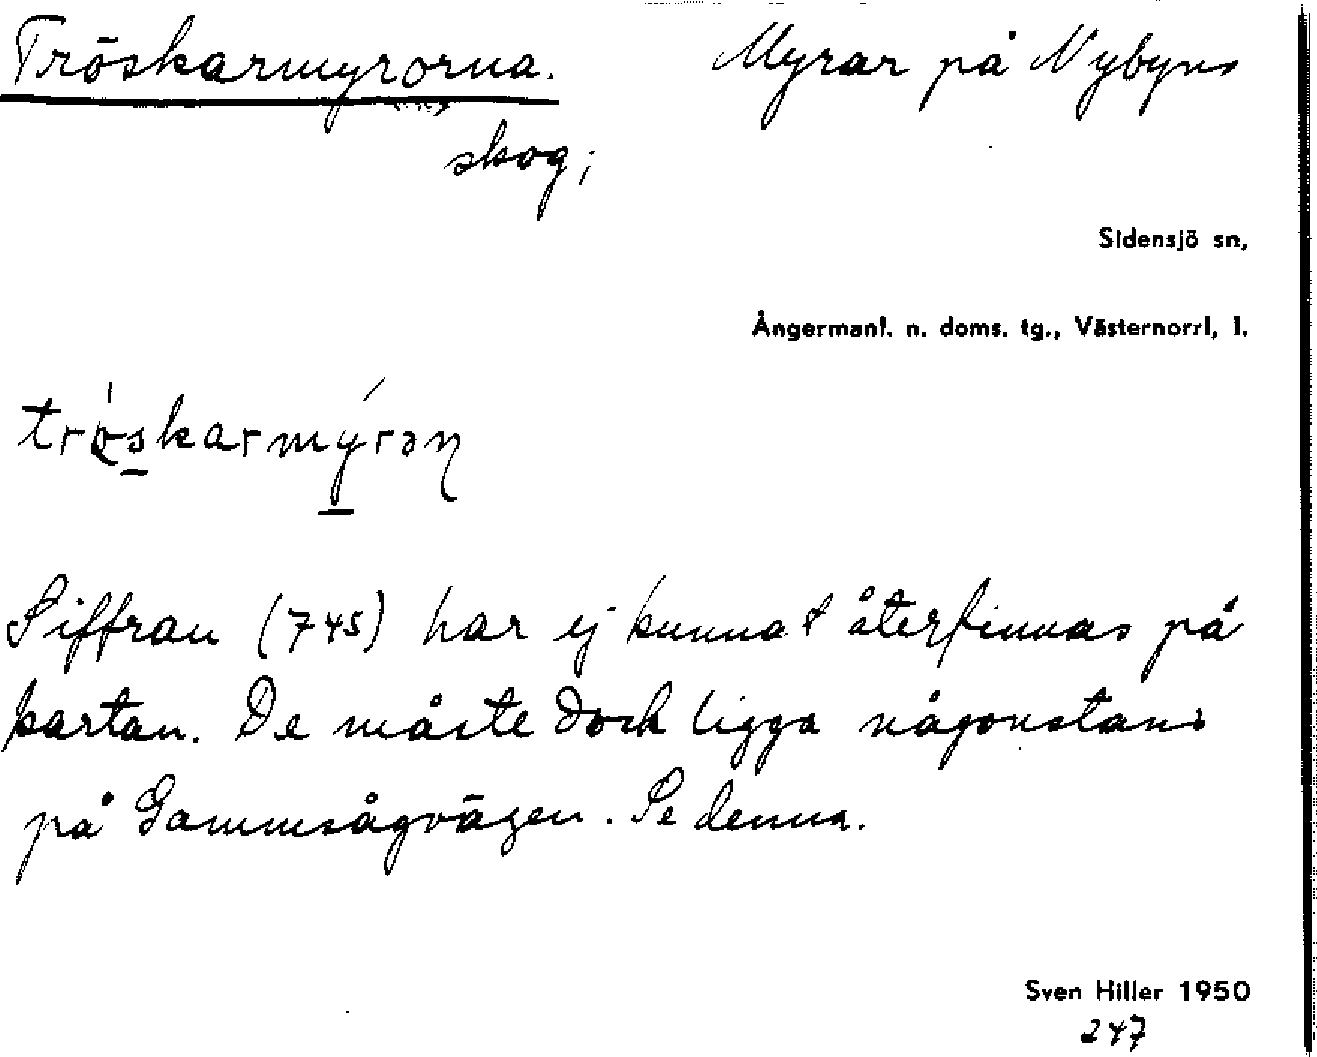 Tröskarmyrorna. Myrar på Nybyns
skog;
Sidensjö sn,
Ångermanl. n. doms. tg., Västernorrl. l.
tröskarmýrɔn
Siffran (745) har ej kunnat återfinnas på
kartan. De måste dock ligga någonstans
på Gammsågvägen. Se denna.
Sven Hiller 1950
247